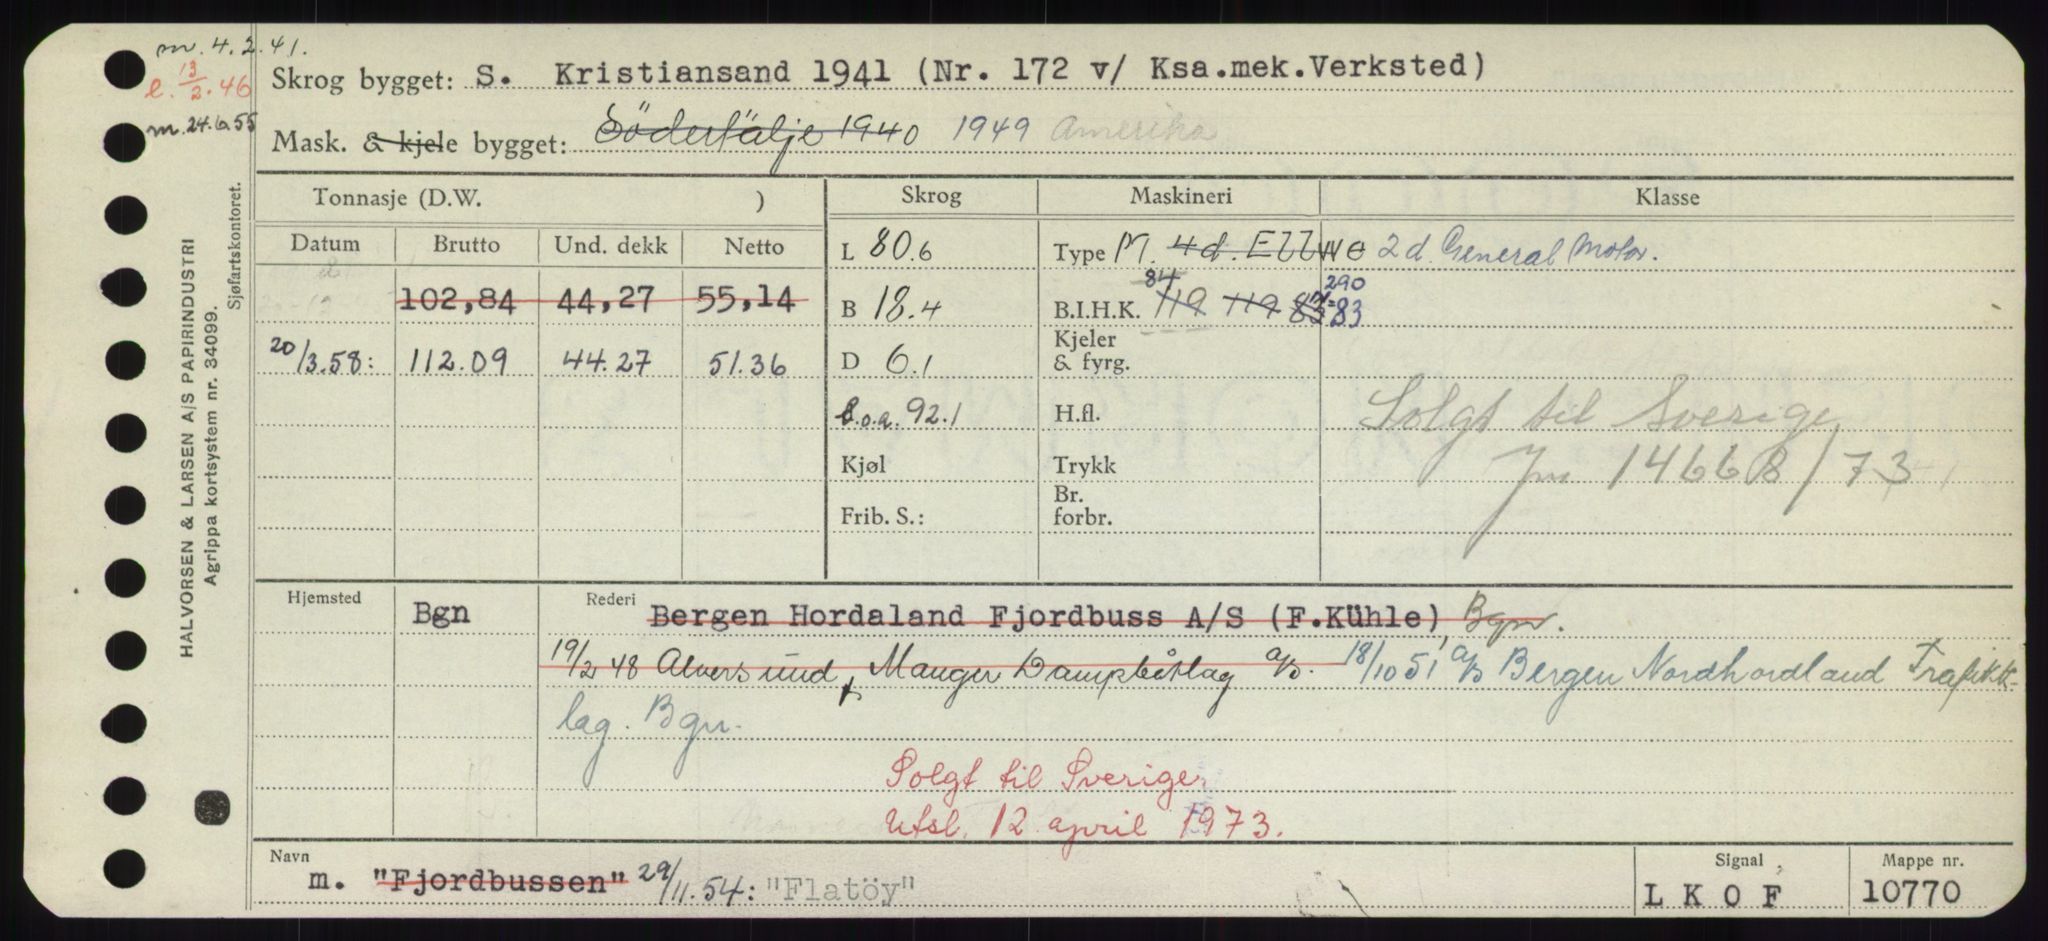 m. 4.2.41.
l. 13/2.46
m. 24.6.55
Skrog bygget: S. Kristiansand 1941 (Nr. 172 v/ Ksa.mek.Verksted)
Mask. & kjele bygget: Södertälje 1940 1949 Amerika
Tonnasje (D.W. ) Skrog Maskineri Klasse
Datum Brutto Und. dekk Netto L 80.6 Type M. 4d. Ellwe 2d. General Motor.
102,84 44,27 55,14 B 18.4 B.I.H.K. 84 119 119 83 290 83
20/3.58: 112.09 44.27 51.36 D 6.1 Kjeler & fyrg.
L.o.a. 92.1 H.fl. Solgt til Sverige
Kjøl Trykk Jnr 14668/73
Frib. S.: Br. forbr.
Hjemsted Bgn Rederi Bergen Hordaland Fjordbuss A/S (F.Kühle), Bgn.
19/2 48 Alversund & Manger Dampbåtlag a/s. 18/10 51 a/s Bergen Nordhordland Trafikk-
lag. Bgn.
Solgt til Sverige
Utsl. 12 april 1973.
Navn m. "Fjordbussen" 29/11.54: "Flatöy" Signal LKOF Mappe nr. 10770
HALVORSEN & LARSEN A/S PAPIRINDUSTRI
Agrippa kortsystem nr. 34099.
Sjøfartskontoret.